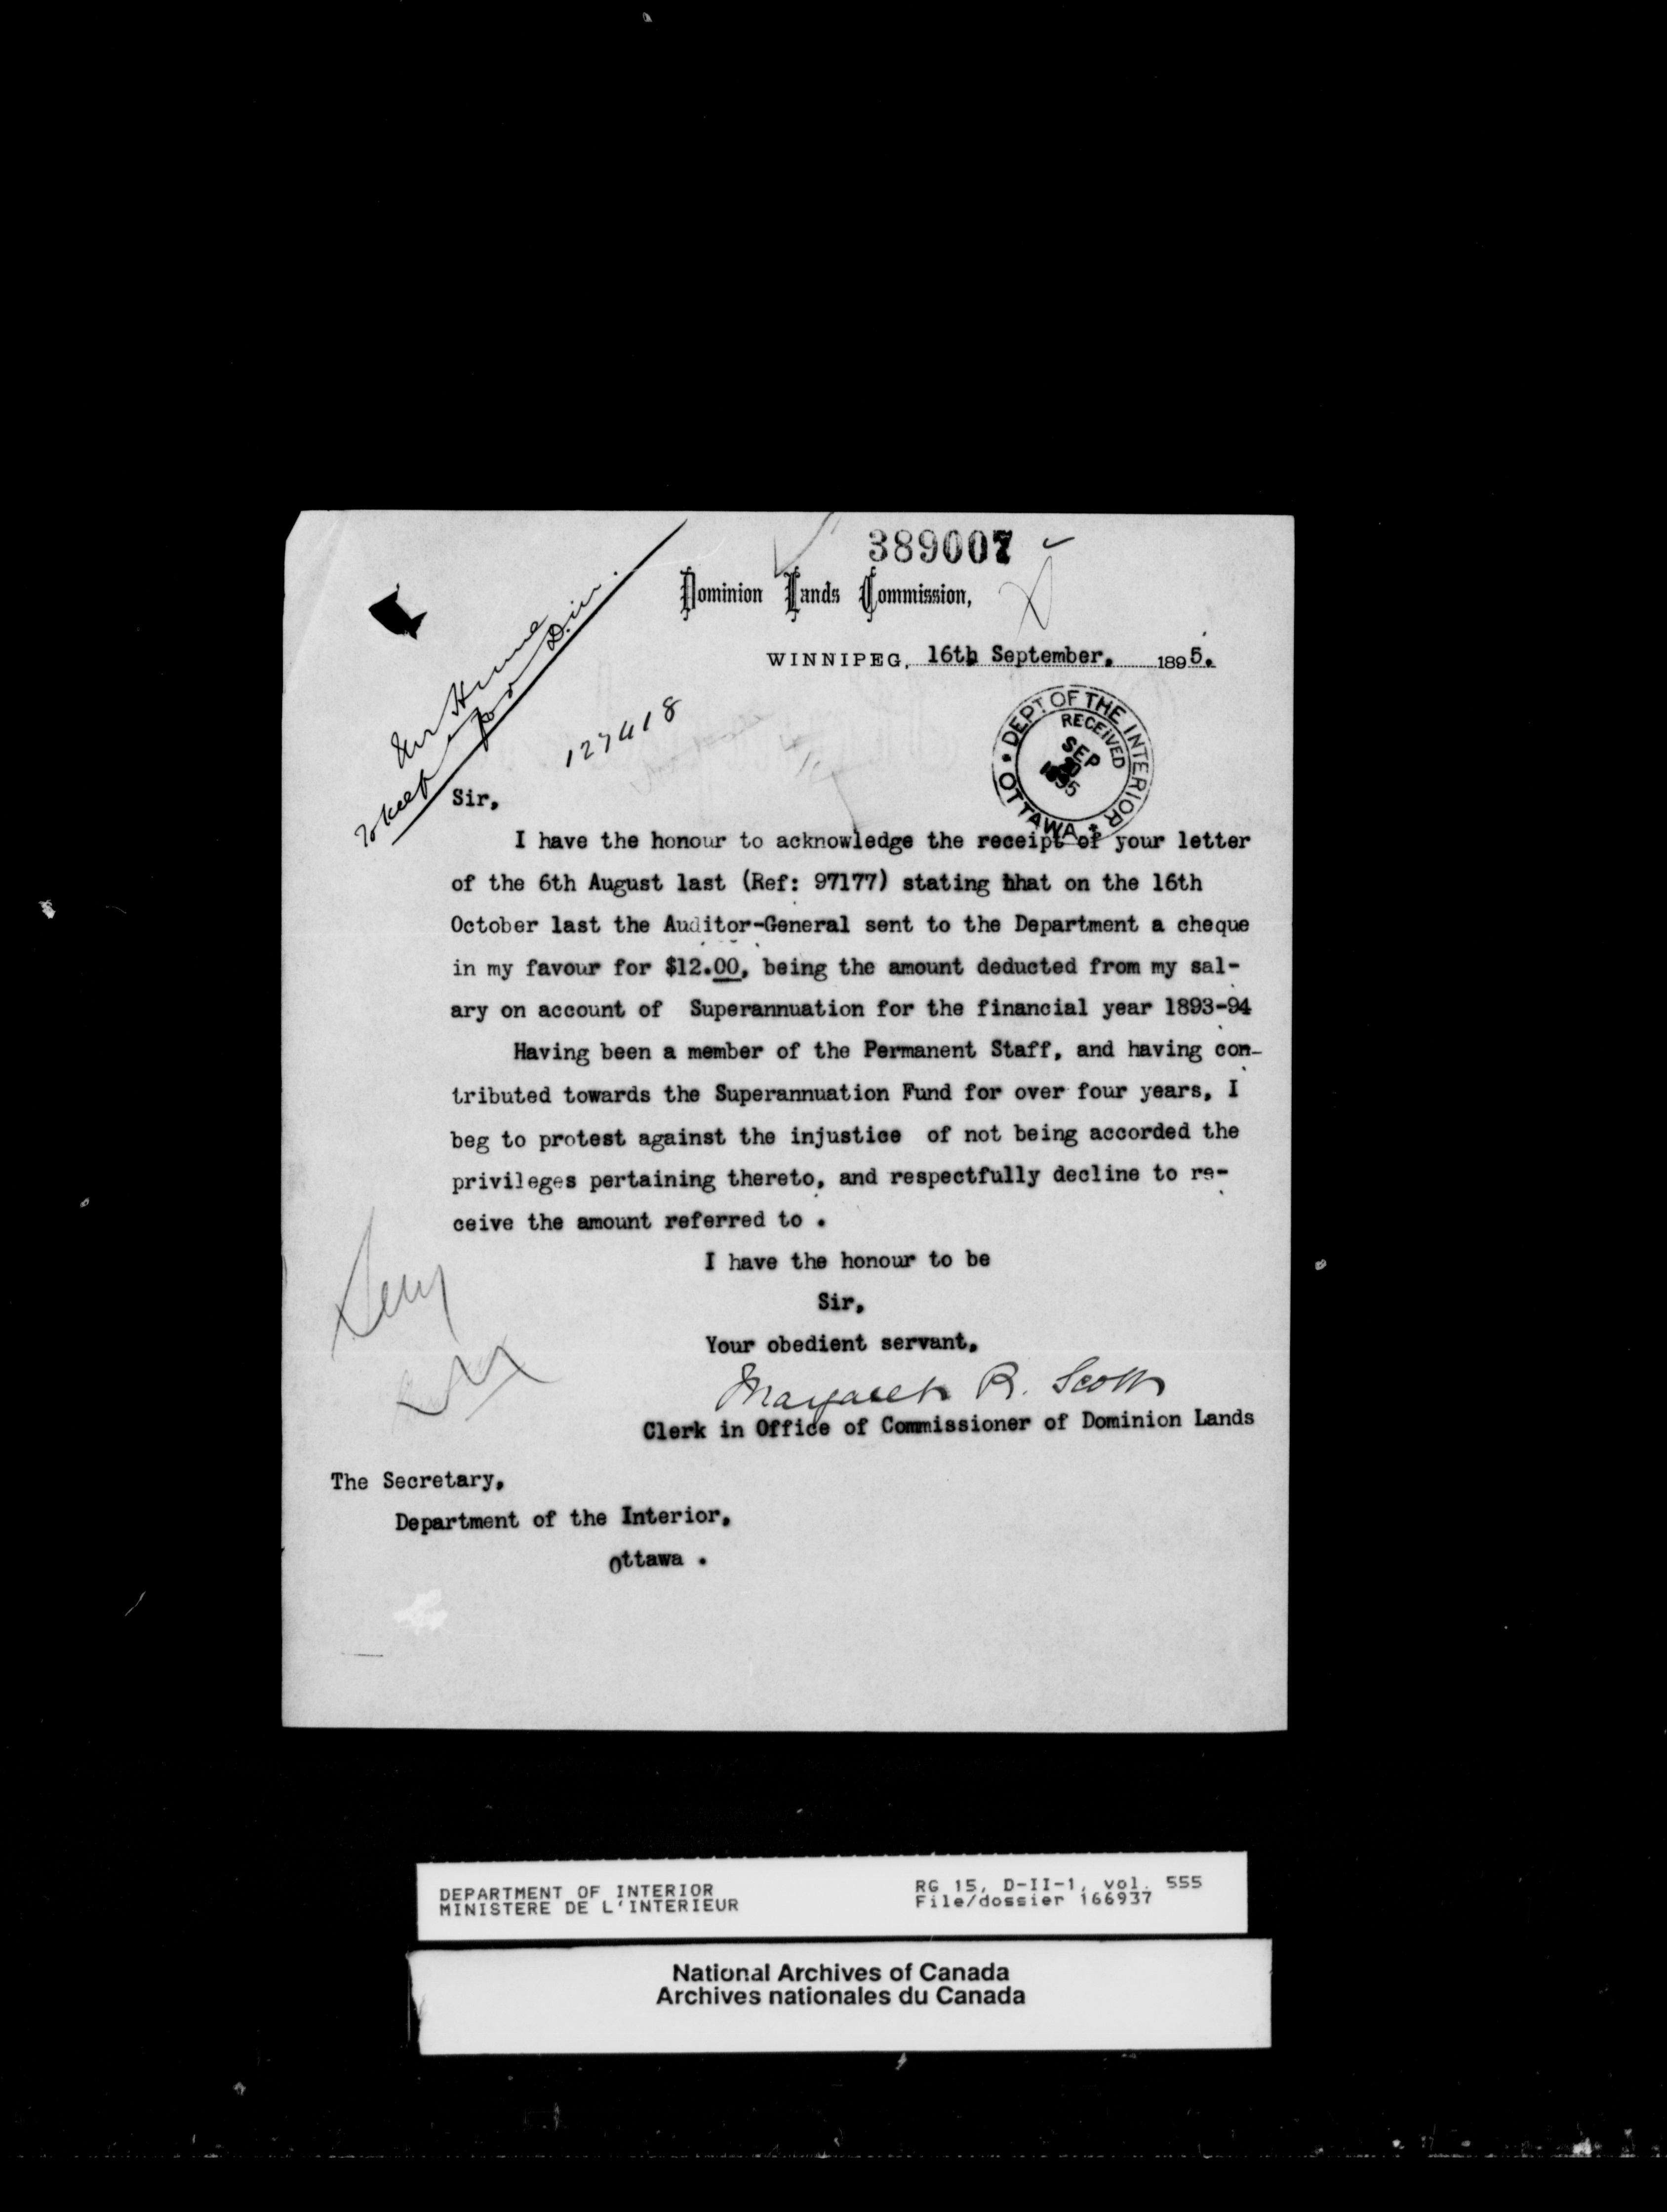 389007
Dominion Lands Commission,
WINNIPEG, 16th September, 1895.
Mr Hume
to keep for Dim.
127418
DEPT. OF THE INTERIOR
RECEIVED
SEP
1895
OTTAWA
Sir,
I have the honour to acknowledge the receipt of your letter
of the 6th August last (Ref: 97177) stating hhat on the 16th
October last the Auditor-General sent to the Department a cheque
in my favour for $12.00, being the amount deducted from my sal-
ary on account of Superannuation for the financial year 1893-94
Having been a member of the Permanent Staff, and having con-
tributed towards the Superannuation Fund for over four years, I
beg to protest against the injustice of not being accorded the
privileges pertaining thereto, and respectfully decline to re-
ceive the amount referred to .
I have the honour to be
Sir,
Your obedient servant,
Margaret R. Scott
Clerk in Office of Commissioner of Dominion Lands
The Secretary,
Department of the Interior,
Ottawa .
DEPARTMENT OF INTERIOR
MINISTERE DE L'INTERIEUR
RG 15, D-II-1, vol. 555
File/dossier 166937
National Archives of Canada
Archives nationales du Canada